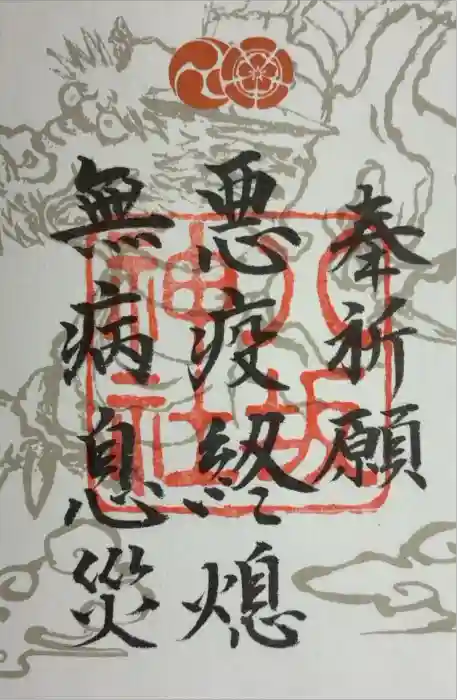 奉祈願
悪疫終熄
無病息災
神社